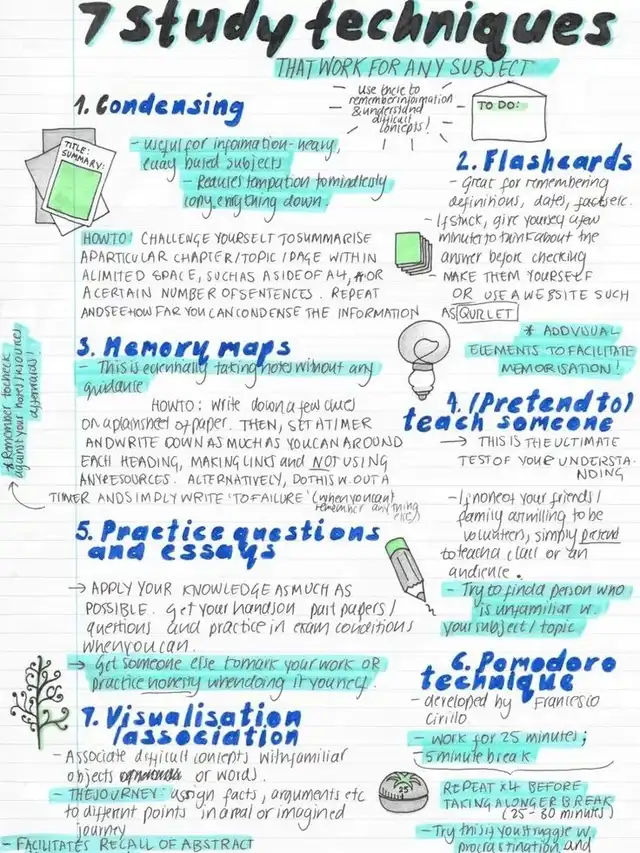 7 study techniques
THAT WORK FOR ANY SUBJECT
use these to
remember information
& understand
difficult
concepts!
TO DO:
1. Condensing
TITLE:
SUMMARY:
- useful for information-heavy,
essay based subjects
- Reduces temptation to mindlessly
copy everything down.
HOW TO: CHALLENGE YOURSELF TO SUMMARISE
A PARTICULAR CHAPTER/TOPIC/PAGE WITHIN
A LIMITED SPACE, SUCH AS A SIDE OF A4, OR
A CERTAIN NUMBER OF SENTENCES. REPEAT
AND SEE HOW FAR YOU CAN CONDENSE THE INFORMATION
2. Flashcards
- Great for remembering
definitions, dates, facts etc.
- If stuck, give yourself a few
minutes to think about the
answer before checking
- MAKE THEM YOURSELF
OR USE A WEBSITE SUCH
AS QUIZLET
* ADD VISUAL
ELEMENTS TO FACILITATE
MEMORISATION!
3. Memory maps
- This is essentially taking notes without any
guidance
HOW TO: Write down a few clues
on a plain sheet of paper. THEN, SET A TIMER
AND WRITE DOWN AS MUCH AS YOU CAN AROUND
EACH HEADING, MAKING LINKS and NOT USING
ANY RESOURCES. ALTERNATIVELY, DO THIS W.OUT A
TIMER AND SIMPLY WRITE 'TO FAILURE' (when you can't
remember anything
else)
* Remember to check
against your notes/resources
afterwards!
4. (Pretend to)
teach someone
→ THIS IS THE ULTIMATE
TEST OF YOUR UNDERSTA-
NDING
- If none of your friends/
family are willing to be
volunteers, simply pretend
to teach a class or an
audience.
- Try to find a person who
is unfamiliar w.
your subject/topic
5. Practice questions
and essays
→ APPLY YOUR KNOWLEDGE AS MUCH AS
POSSIBLE. Get your hands on past papers/
questions and practice in exam conditions
when you can.
→ Get someone else to mark your work OR
practice honesty when doing it yourself.
6. Pomodoro
technique
- developed by Francesco
Cirillo
- work for 25 minutes;
5 minute break
25
REPEAT x4 BEFORE
TAKING A LONGER BREAK
(25-30 minutes)
- Try this if you struggle w.
procrastination and
7. Visualisation
/association
- Associate difficult concepts with familiar
objects or words.
- THE JOURNEY: assign facts, arguments etc
to different points in a real or imagined
journey
- FACILITATES RECALL OF ABSTRACT